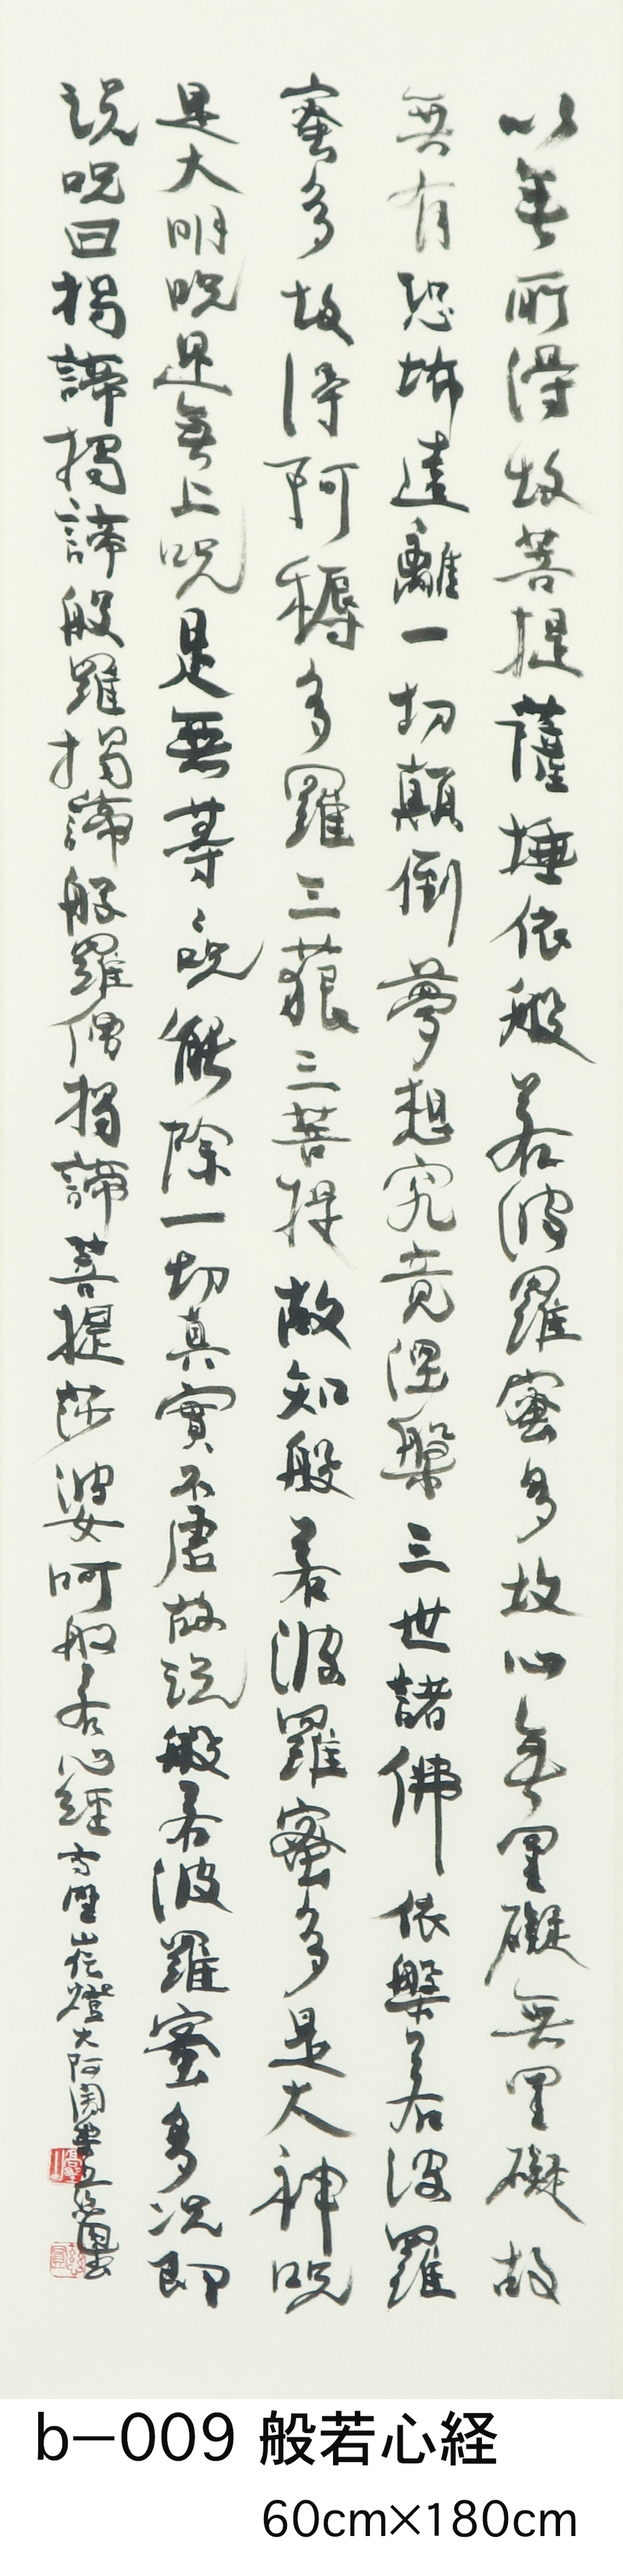 以無所得故菩提薩埵依般若波羅蜜多故心無罣礙無罣礙故
無有恐怖遠離一切顛倒夢想究竟涅槃三世諸佛依槃若波羅
蜜多故得阿耨多羅三藐三菩提故知般若波羅蜜多是大神呪
是大明呪是無上呪是無等々呪能除一切真實不虚故説般若波羅蜜多呪即
説呪曰揭諦揭諦般羅揭諦般羅僧揭諦菩提莎婆呵般若心經
b-009 般若心経
60cm×180cm